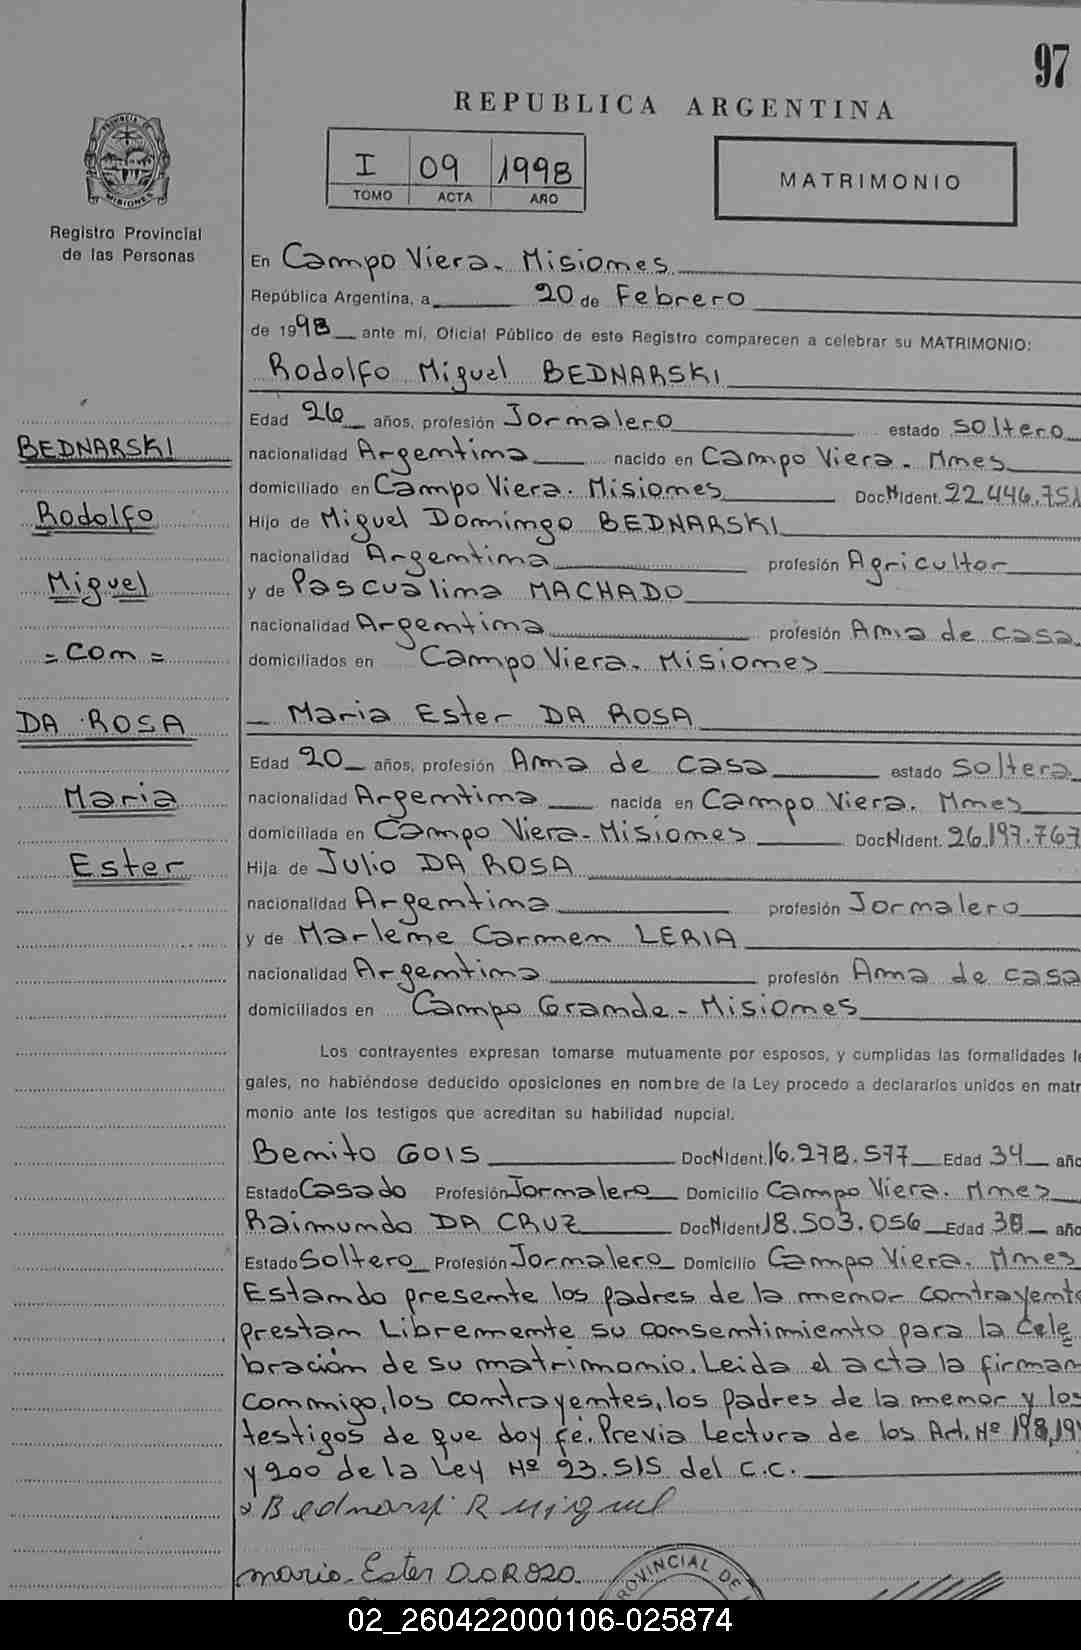 97
REPUBLICA ARGENTINA
I 09 1998
TOMO ACTA AÑO
MATRIMONIO
PROVINCIA DE
MISIONES
Registro Provincial
de las Personas
En Campo Viera. Misiones
República Argentina, a 20 de Febrero
de 1998 ante mí, Oficial Público de este Registro comparecen a celebrar su MATRIMONIO:
Rodolfo Miguel BEDNARSKI
Edad 26 años, profesión Jornalero estado soltero
BEDNARSKI
nacionalidad Argentina nacido en Campo Viera. Mnes
domiciliado en Campo Viera. Misiones Doc N Ident. 22.446.751
Rodolfo
Hijo de Miguel Domingo BEDNARSKI
nacionalidad Argentina profesión Agricultor
Miguel
y de Pascualina MACHADO
nacionalidad Argentina profesión Ama de casa
= con =
domiciliados en Campo Viera. Misiones
DA ROSA
Maria Ester DA ROSA
Edad 20 años, profesión Ama de casa estado soltera
Maria
nacionalidad Argentina nacida en Campo Viera. Mnes
domiciliada en Campo Viera-Misiones Doc N Ident. 26.197.767
Ester
Hija de Julio DA ROSA
nacionalidad Argentina profesión Jornalero
y de Marlene Carmen LERIA
nacionalidad Argentina profesión Ama de casa
domiciliados en Campo Grande-Misiones
Los contrayentes expresan tomarse mutuamente por esposos, y cumplidas las formalidades le
gales, no habiéndose deducido oposiciones en nombre de la Ley procedo a declararlos unidos en matr
monio ante los testigos que acreditan su habilidad nupcial.
Benito GOIS Doc N Ident. 16.278.577 Edad 34 año
Estado Casado Profesión Jornalero Domicilio Campo Viera. Mnes
Raimundo DA CRUZ Doc N Ident 18.503.056 Edad 30 año
Estado Soltero Profesión Jornalero Domicilio Campo Viera. Mnes
Estando presente los padres de la menor contrayente
prestan Libremente su consentimiento para la Cele
bración de su matrimonio. Leida el acta la firman
conmigo, los contrayentes, los padres de la menor y los
testigos de que doy fé. Previa Lectura de los Art. Nº 198, 199
y 200 de la Ley Nº 23.515 del C.C.
R Miguel
maria Ester DAROSA
PROVINCIAL DE
02_260422000106-025874